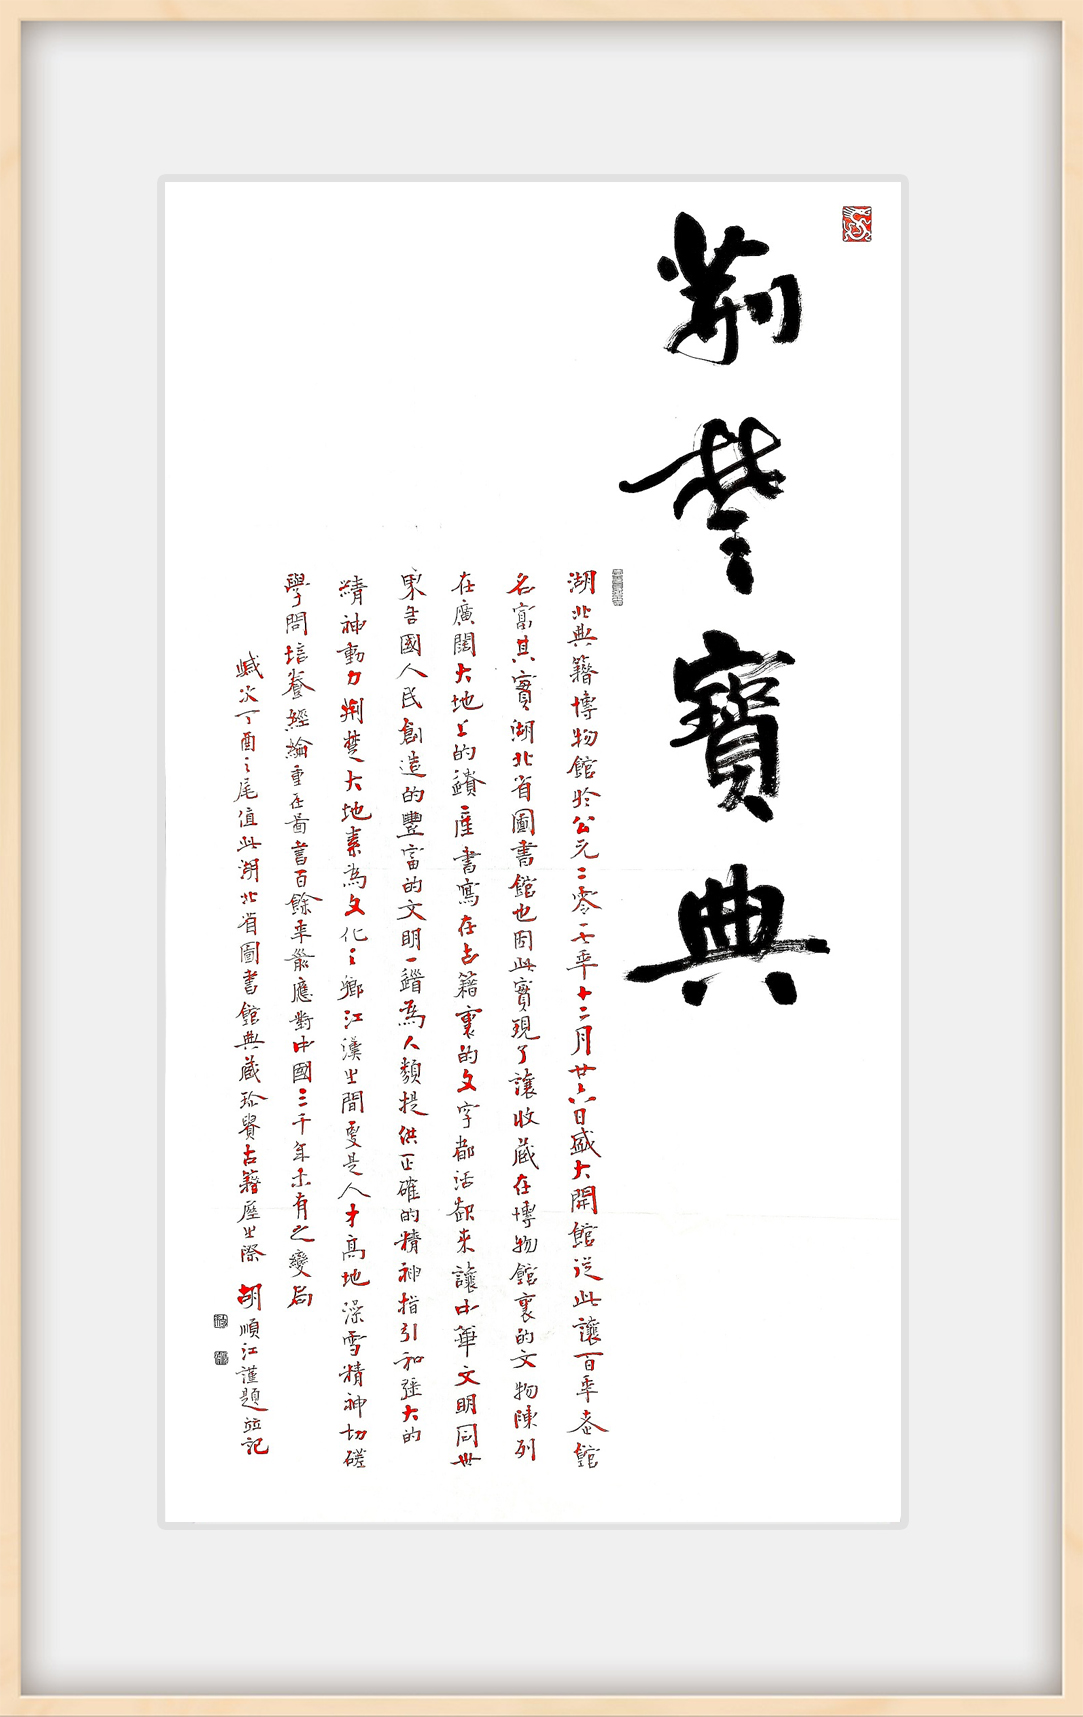 荆楚寶典
湖北典籍博物館於公元二零一七年十二月廿六日盛大開館從此讓百年老館
名富其實湖北省圖書館也因此實現了讓收藏在博物館裏的文物陳列
在廣闊大地上的遺產書寫在古籍裏的文字都活起來讓中華文明同世
界各國人民創造的豐富的文明一道為人類提供正確的精神指引和強大的
精神動力荆楚大地素為文化之鄉江漢之間更是人才高地澡雪精神切磋
學問培養經綸重在圖書百餘年參應對中國三千年未有之變局
歲次丁酉之尾值此湖北省圖書館典藏珍貴古籍歷之際 胡順江謹題並記